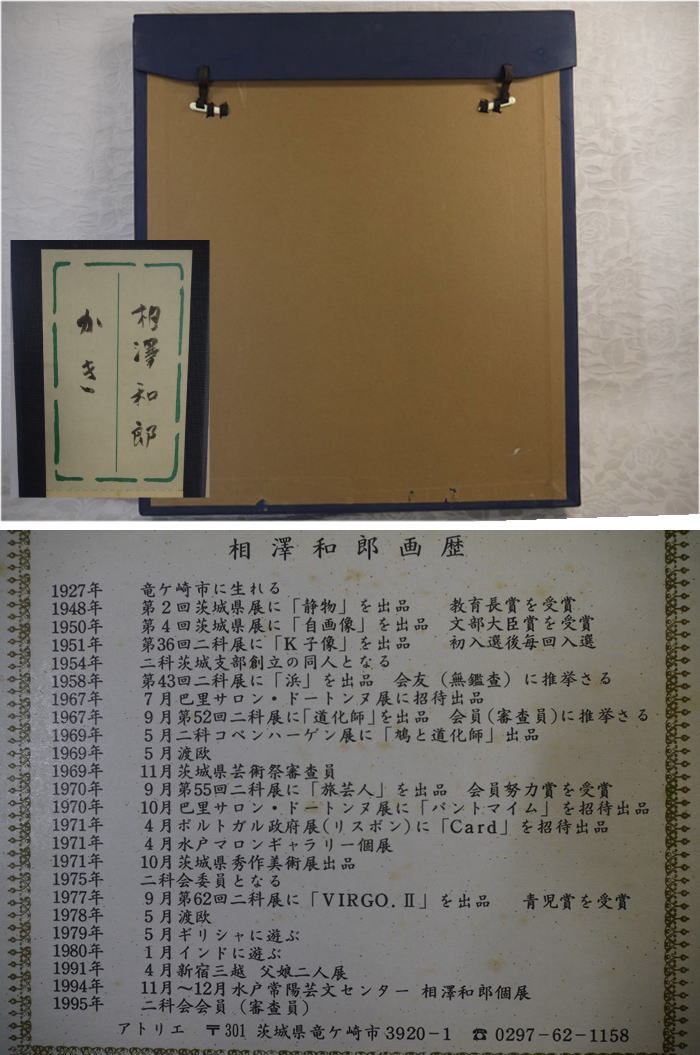 相澤和郎
かき
相澤和郎画歴
1927年 竜ケ崎市に生れる
1948年 第2回茨城県展に「静物」を出品 教育長賞を受賞
1950年 第4回茨城県展に「自画像」を出品 文部大臣賞を受賞
1951年 第36回二科展に「K子像」を出品 初入選後毎回入選
1954年 二科茨城支部創立の同人となる
1958年 第43回二科展に「浜」を出品 会友(無鑑査)に推挙さる
1967年 7月巴里サロン・ドートンヌ展に招待出品
1967年 9月第52回二科展に「道化師」を出品 会員(審査員)に推挙さる
1969年 5月二科コペンハーゲン展に「鳩と道化師」出品
1969年 5月渡欧
1969年 11月茨城県芸術祭審査員
1970年 9月第55回二科展に「旅芸人」を出品 会員努力賞を受賞
1970年 10月巴里サロン・ドートンヌ展に「パントマイム」を招待出品
1971年 4月ポルトガル政府展(リスボン)に「Card」を招待出品
1971年 4月水戸マロンギャラリー個展
1971年 10月茨城県秀作美術展出品
1975年 二科会委員となる
1977年 9月第62回二科展に「VIRGO.Ⅱ」を出品 青児賞を受賞
1978年 5月渡欧
1979年 5月ギリシャに遊ぶ
1980年 1月インドに遊ぶ
1991年 4月新宿三越 父娘二人展
1994年 11月~12月水戸常陽芸文センター 相澤和郎個展
1995年 二科会会員(審査員)
アトリエ 〒301 茨城県竜ケ崎市3920-1 ☎0297-62-1158